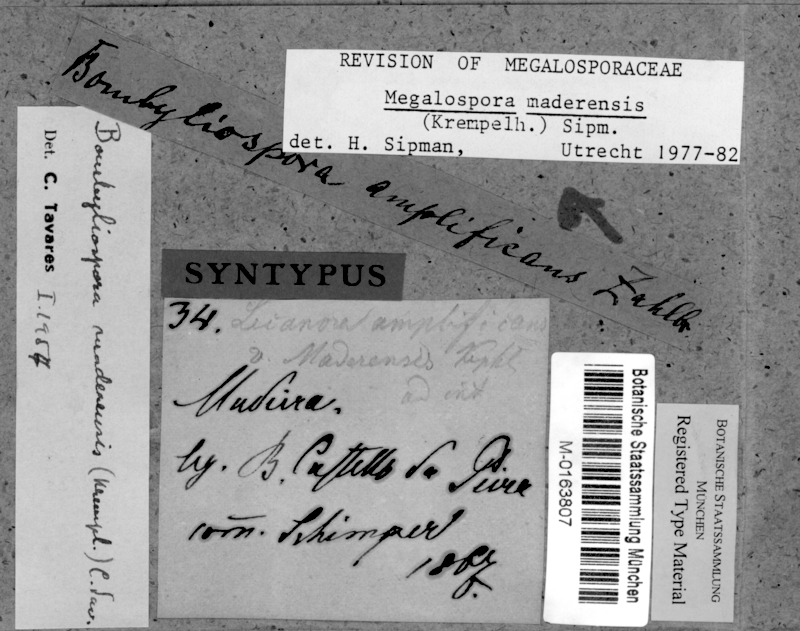 REVISION OF MEGALOSPORACEAE
Megalospora maderensis
(Krempelh.) Sipm.
det. H. Sipman, Utrecht 1977-82
Bombyliospora amplificans Zahlbr.
Bombyliospora maderensis (Krempl.) C. Tav.
Det. C. Tavares I.1954
SYNTYPUS
34. Lecanora amplificans
v. Maderensis Kphb
ad int
Madeira.
lg. B. Castello de Paiva
com. Schimper
1867.
Botanische Staatssammlung München
M-0163807
BOTANISCHE STAATSSAMMLUNG
MÜNCHEN
Registered Type Material